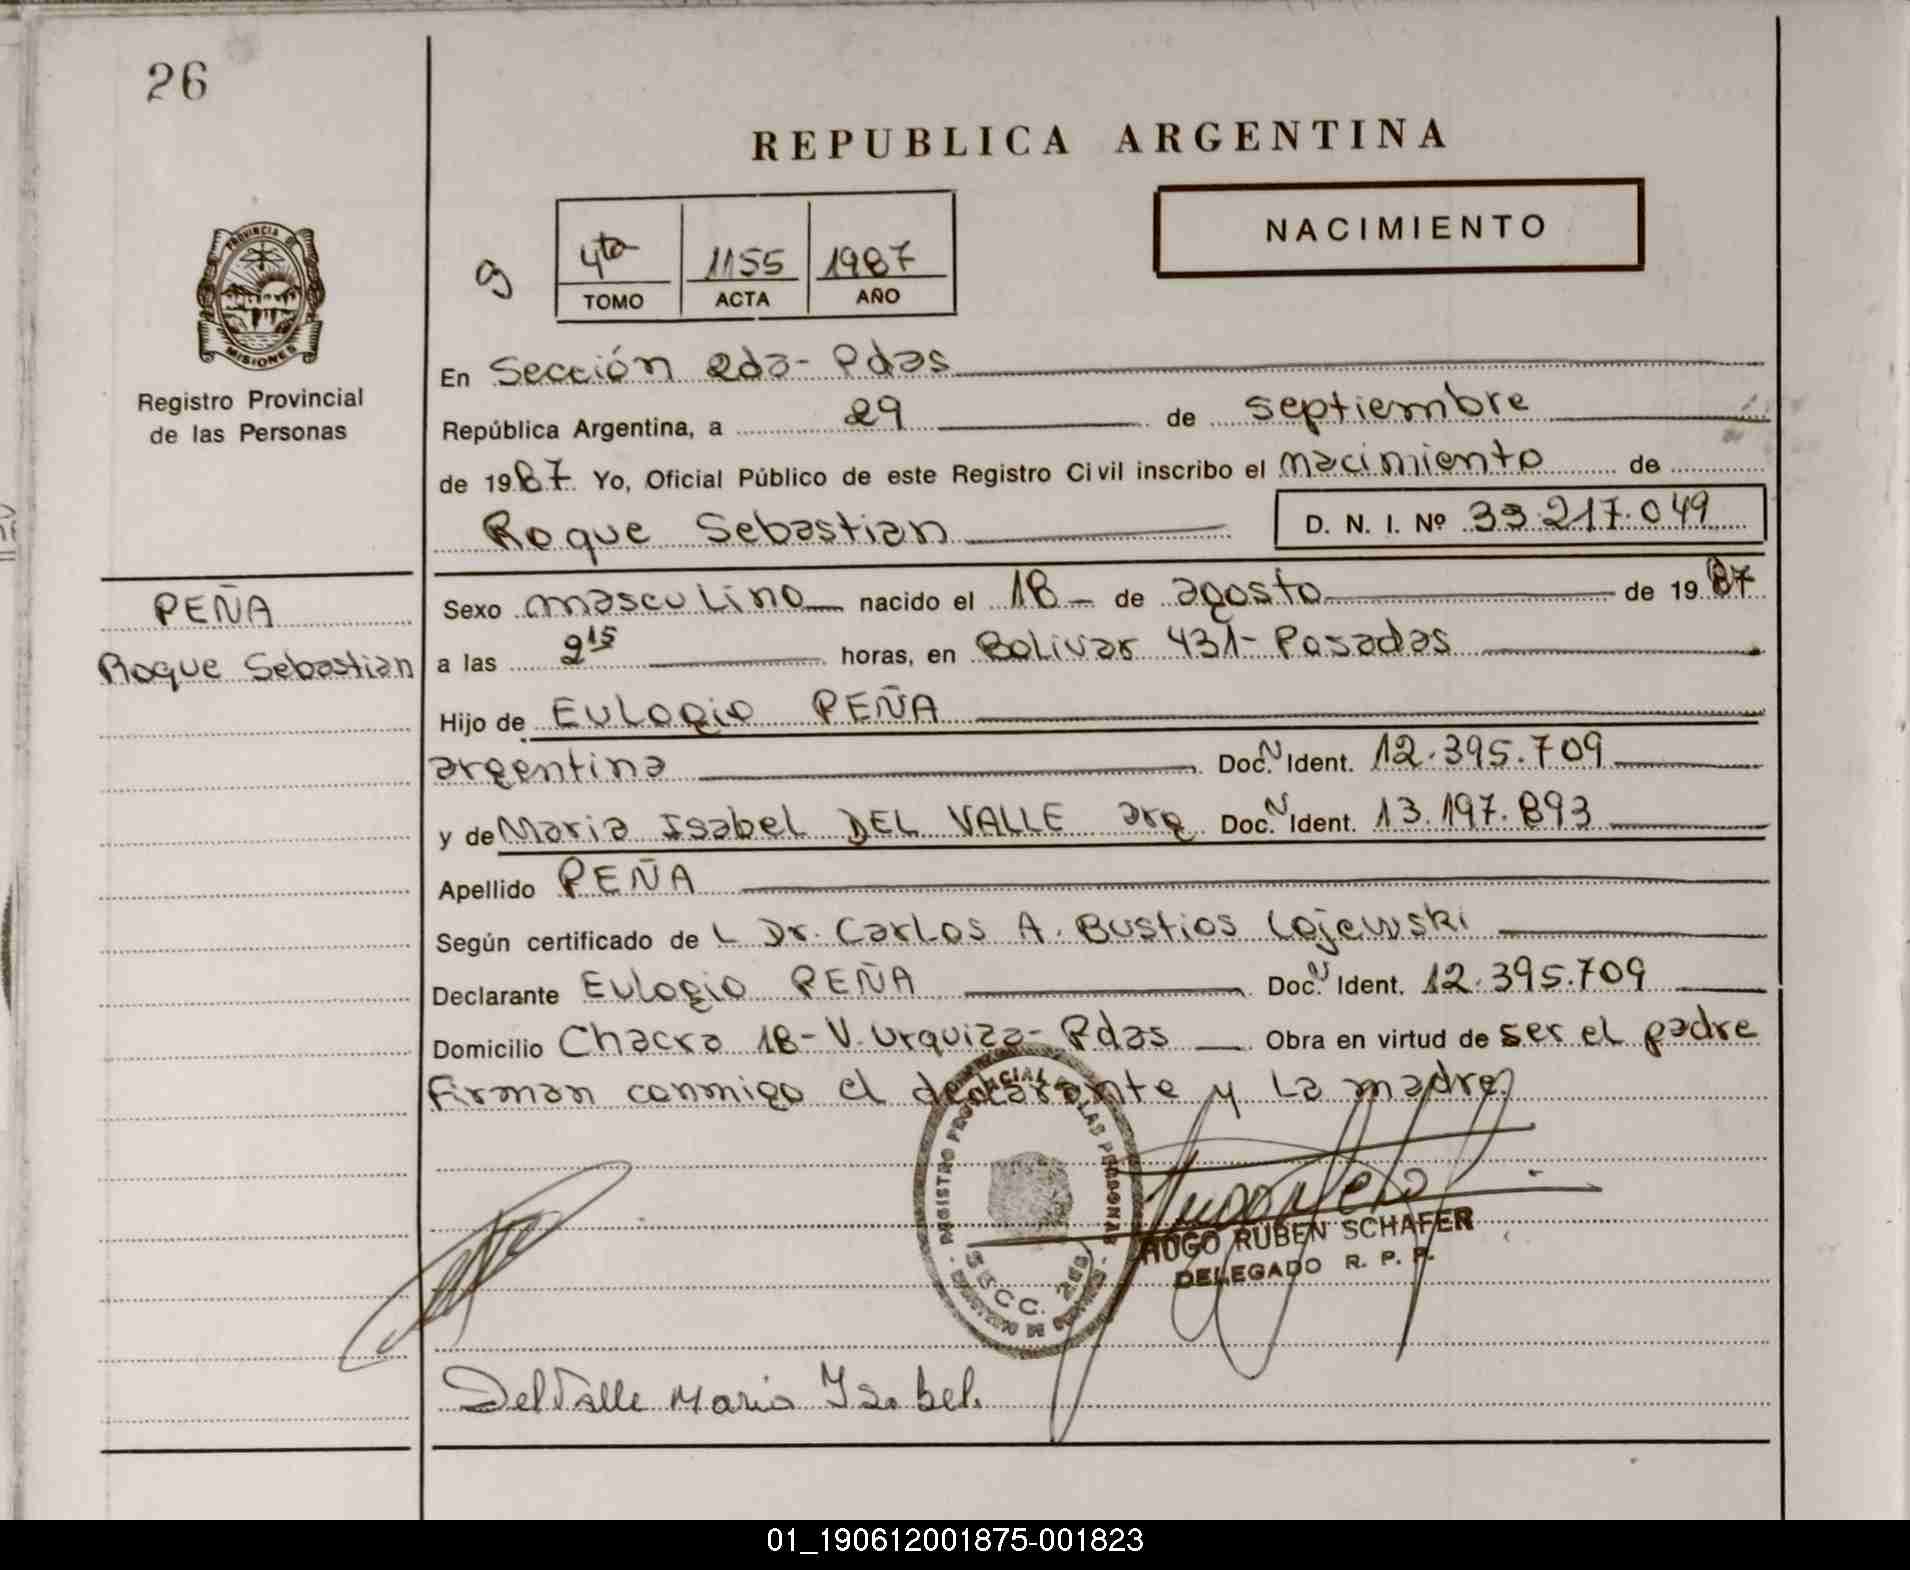 26
REPUBLICA ARGENTINA
NACIMIENTO
PROVINCIA DE
MISIONES
Registro Provincial
de las Personas
4ta 1155 1987
TOMO ACTA AÑO
En Sección 2da- Pdas
República Argentina, a 29 de septiembre
de 1987 Yo, Oficial Público de este Registro Civil inscribo el nacimiento de
Roque Sebastian D. N. I. Nº 33.217.049
PEÑA
Roque Sebastian
Sexo masculino nacido el 18 de agosto de 1987
a las 215 horas, en Bolivar 431- Posadas
Hijo de Eulogio PEÑA
argentina Doc. N Ident. 12.395.709
y de Maria Isabel DEL VALLE arg Doc. N Ident. 13.197.893
Apellido PEÑA
Según certificado de L Dr. Carlos A. Bustios Lojewski
Declarante Eulogio PEÑA Doc. N Ident. 12.395.709
Domicilio Chacra 18- V. Urquiza- Pdas Obra en virtud de ser el padre
firman conmigo el declarante y la madre
REGISTRO PROVINCIAL DE LAS PERSONAS
SECC. 2da
HUGO RUBEN SCHAFER
DELEGADO R. P. P.
Del Valle Maria Isabel.
01_190612001875-001823